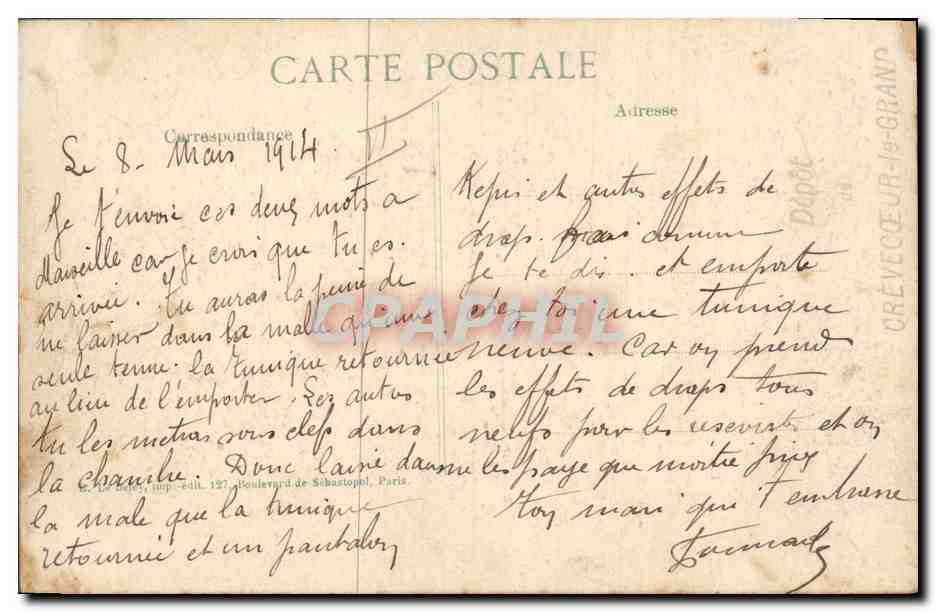 CARTE POSTALE
Correspondance
Adresse
Le 8 Mars 1914.
II
Je t'envoie ces deux mots a
Marseille car je crois que tu es
arrivée. Tu auras la peine de
ne laisser dans la malle qu'une
seule tenue. la tunique retournée
au lieu de l'emporter. Les autres
tu les metras sous clefs dans
la chambre. Donc laisse dans
la male que la tunique
retournée et un pantalon
Kepis et autres effets de
drap. comme
Je te dis. et emporte
chez toi une tunique
neuve. Car on prend
les effets de draps tous
neufs pour les reservistes et on
ne les paye que moitié prix
ton mari qui t'embrasse
E. Le Deley, imp.-édit. 127, Boulevard de Sébastopol, Paris
Dépôt
de
CRÈVECŒUR-le-GRAND
CPAPHIL